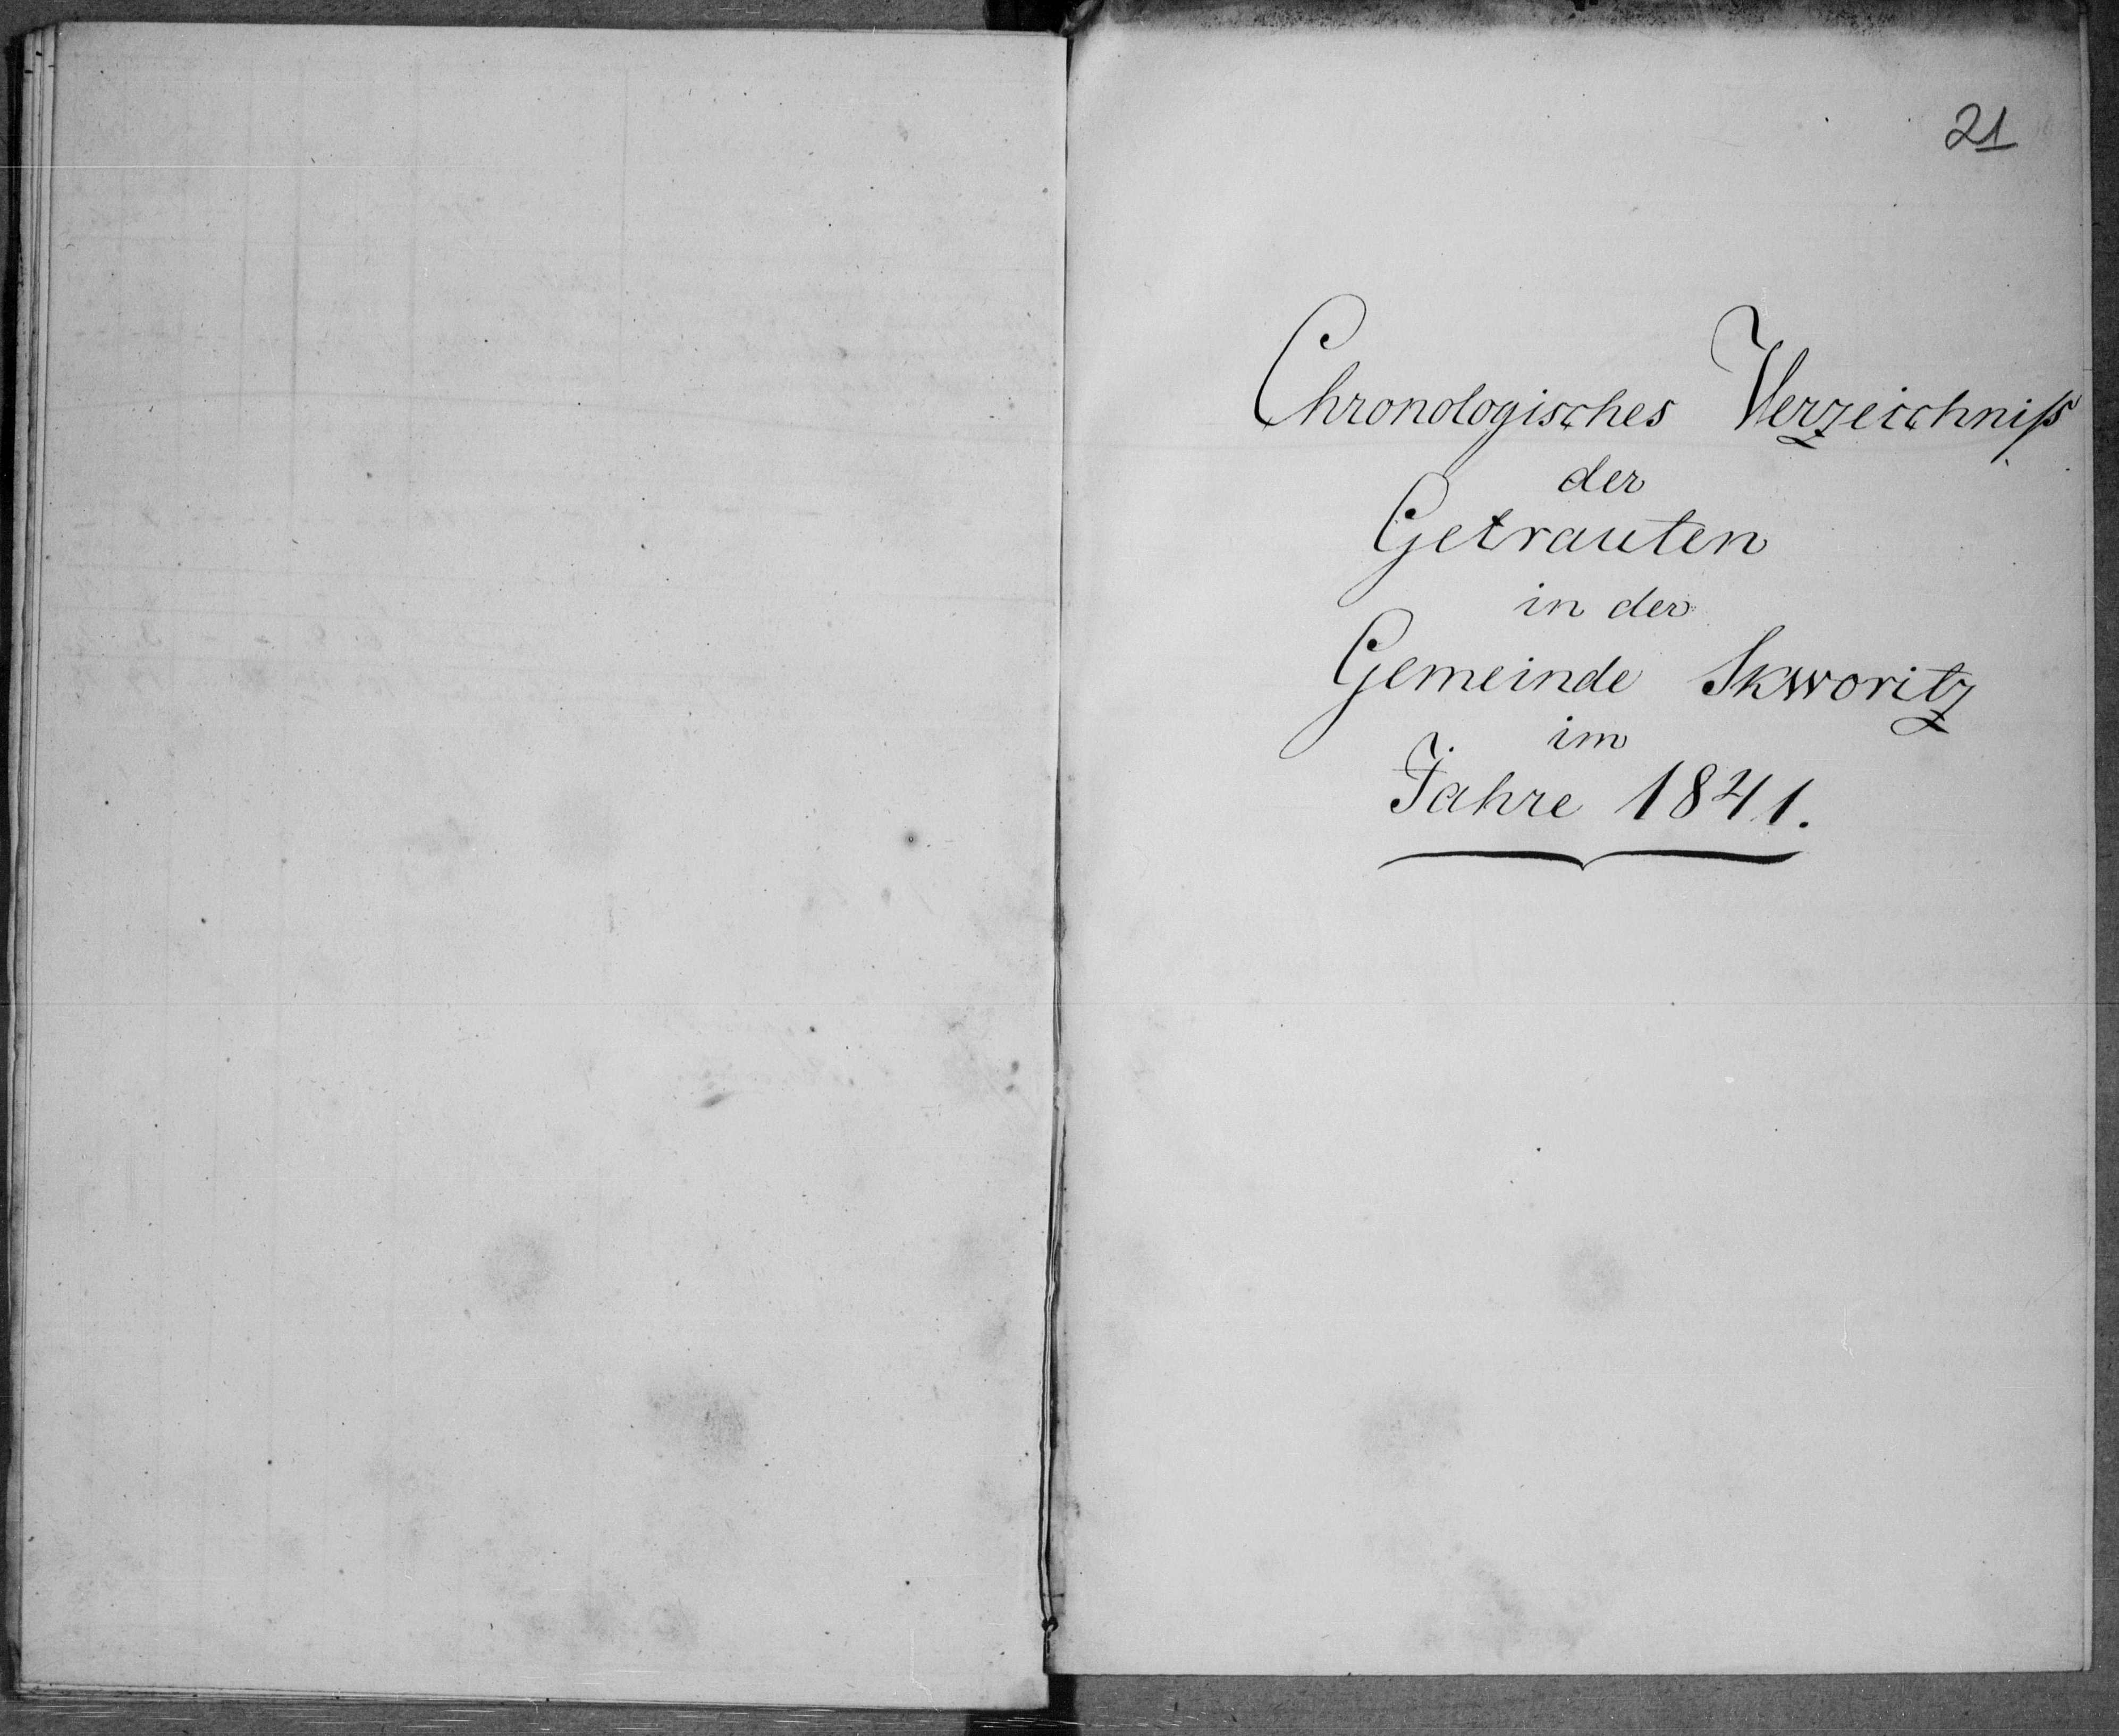 21
Chronologisches Verzeichniß
der
Getrauten
in der
Gemeinde Skworitz
im
Jahre 1841.